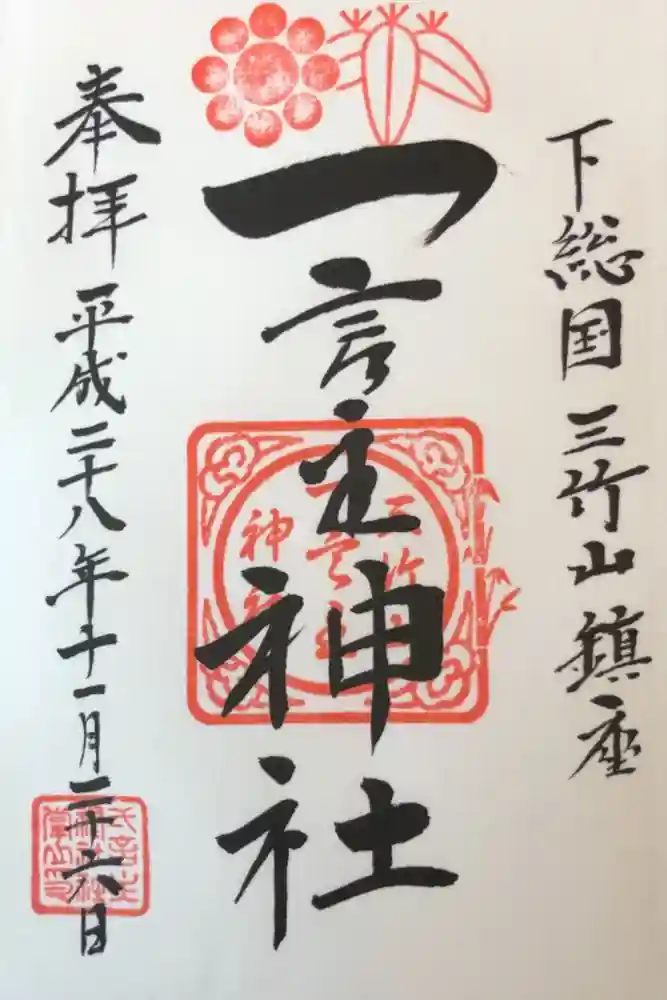 下総国三竹山鎮座
一言主神社
奉拝
平成二十八年十一月二十六日